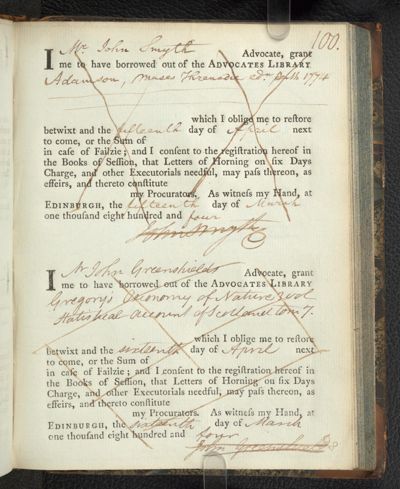 100.
I Mr. John Smyth Advocate, grant
me to have borrowed out of the ADVOCATES LIBRARY
Adamson, muses Threnodie edn. 1774
which I oblige me to reſtore
betwixt and the fifteenth day of April next
to come, or the Sum of
in caſe of Failzie; and I conſent to the regiſtration hereof in
the Books of Seſſion, that Letters of Horning on ſix Days
Charge, and other Executorials needful, may paſs thereon, as
effeirs, and thereto conſtitute
my Procurators. As witneſs my Hand, at
EDINBURGH, the fifteenth day of March
one thouſand eight hundred and four
John Smyth
I Mr John Greenshields Advocate, grant
me to have borrowed out of the ADVOCATES LIBRARY
Gregory's Oeconomy of Nature 3 vol
Statistical account of Scotland tom 7.
which I oblige me to reſtore
betwixt and the sixteenth day of April next
to come, or the Sum of
in caſe of Failzie; and I conſent to the regiſtration hereof in
the Books of Seſſion, that Letters of Horning on ſix Days
Charge, and other Executorials needful, may paſs thereon, as
effeirs, and thereto conſtitute
my Procurators. As witneſs my Hand, at
EDINBURGH, the sixteenth day of March
one thouſand eight hundred and four
John Greenshields